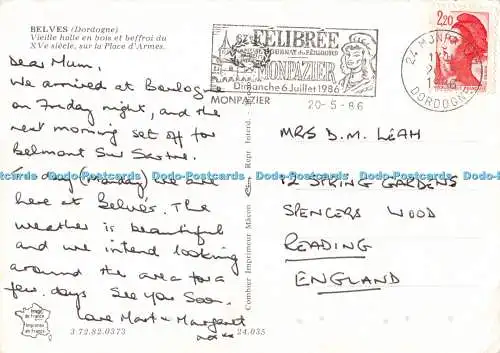 BELVES (Dordogne)
Vieille halle en bois et beffroi du
XVe siècle, sur la Place d'Armes.
Dear Mum,
We arrived at Boulogne
on Friday night, and the
next morning set off for
Belmont Sur
To day (Monday) we are
here at Belvés. The
weather is beautiful
and we intend looking
around the area for a
few days See You Soon.
Love Mart + Margaret
xxxx
Image de France
Imprimée en France
3.72.82.0373
24.035
Combier Imprimeur Mâcon
Repr. Interd.
FELIBRÉE
MONPAZIER
Dimanche 6 Juillet 1986
MONPAZIER
20-5-86
24
DORDOGNE
2,20
MRS D.M. LEAH
12 SPRING GARDENS
SPENCERS WOOD
READING
ENGLAND
Do-Postcards